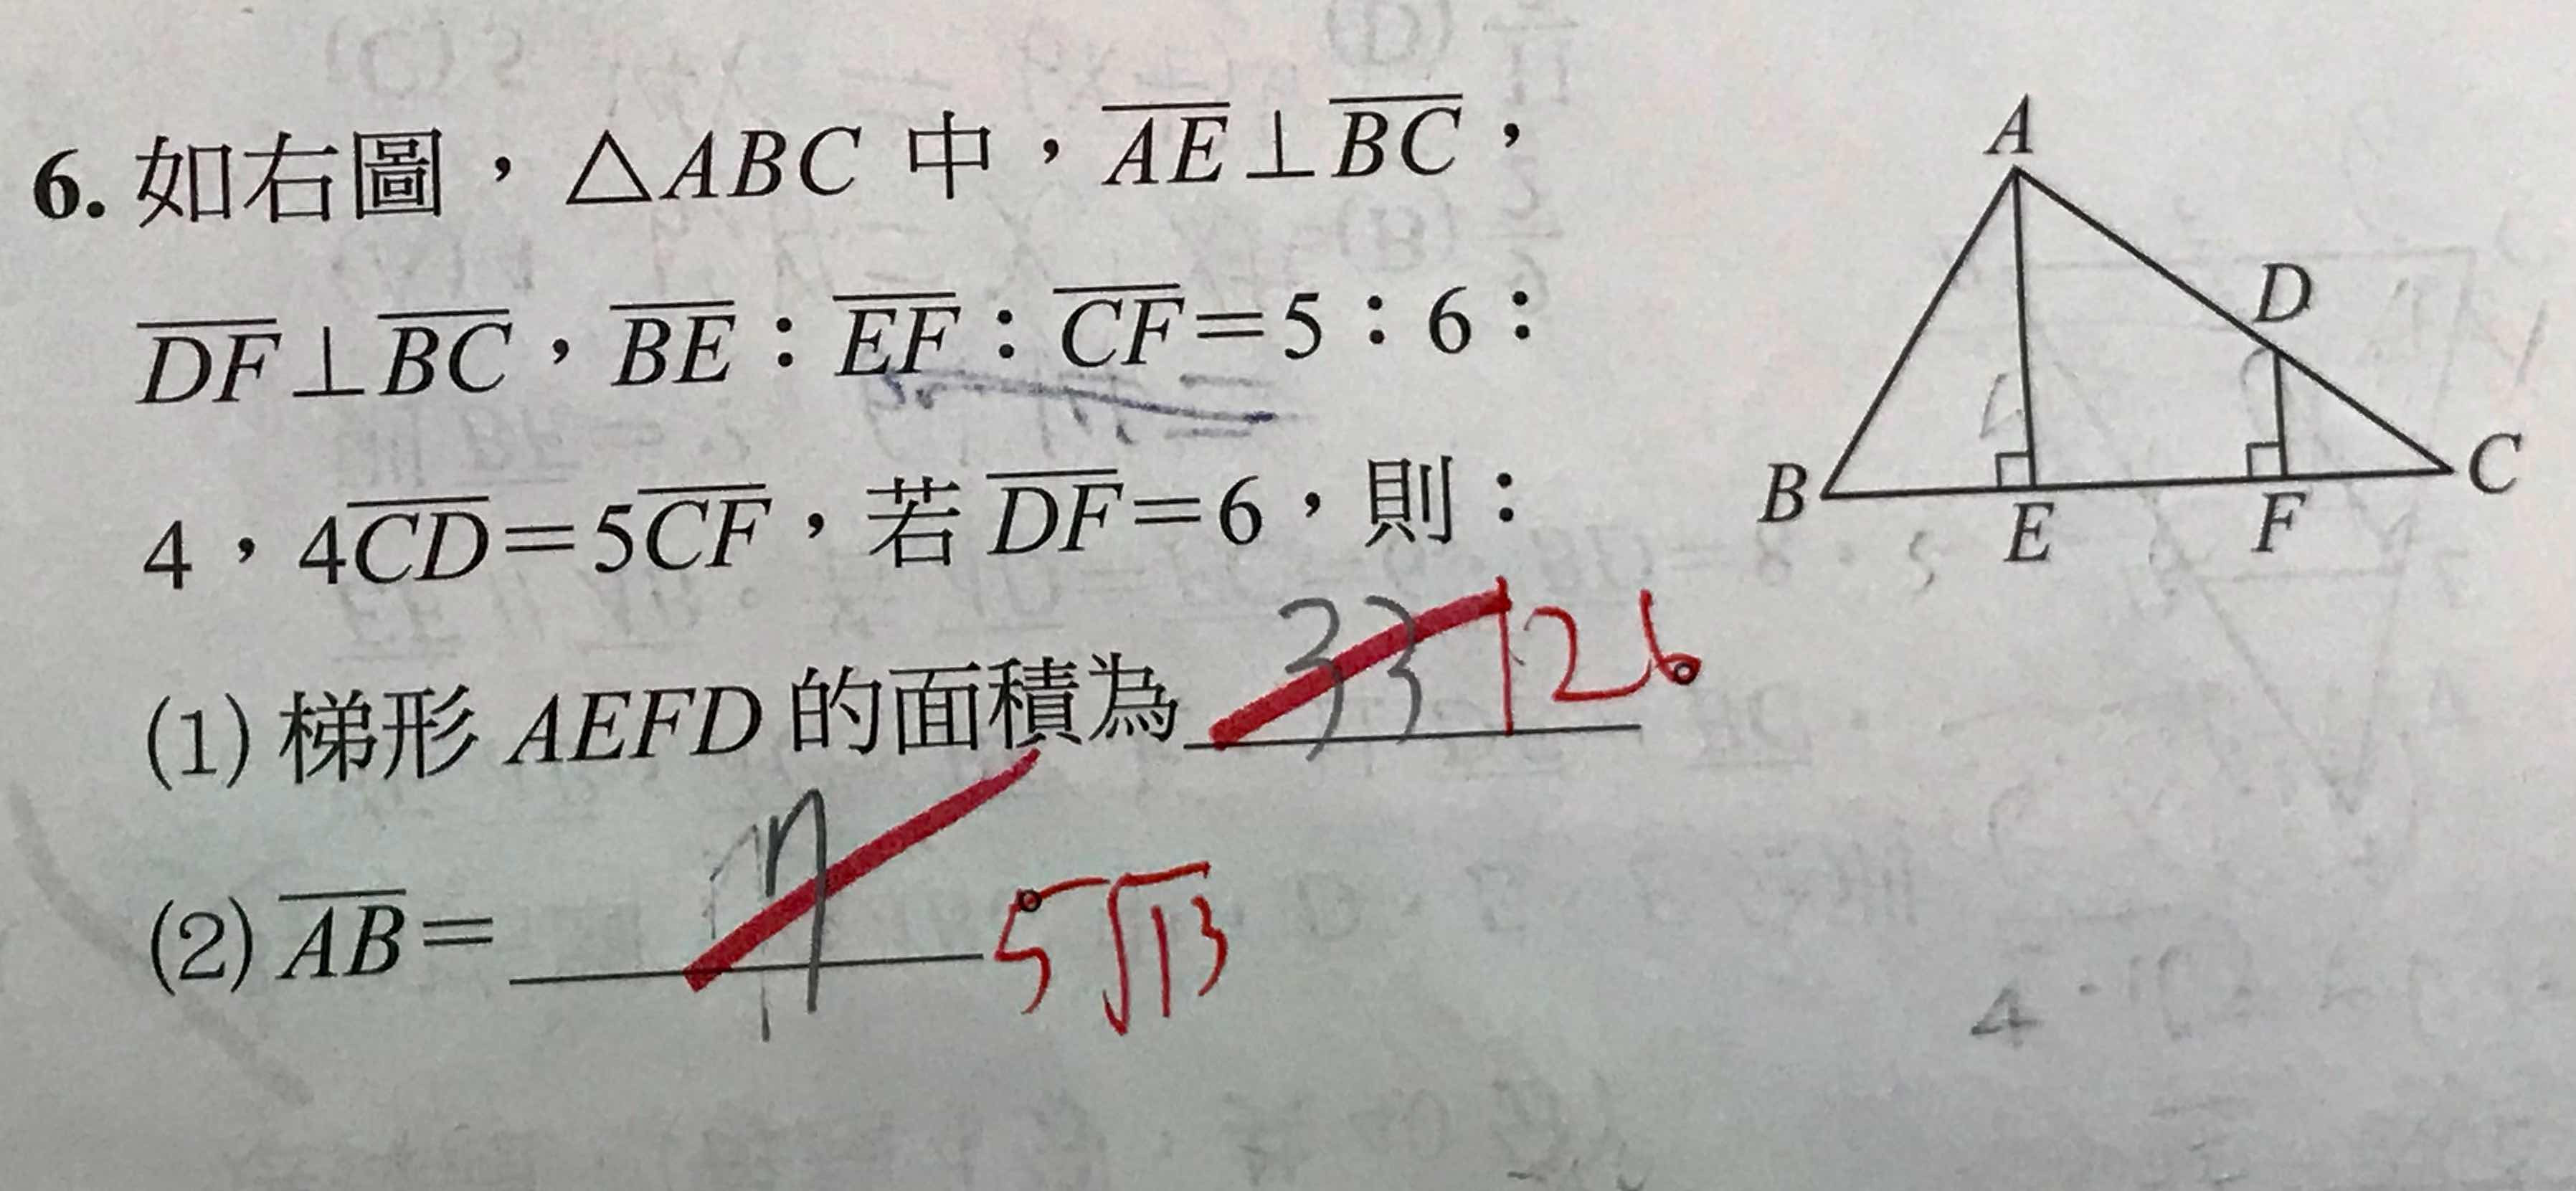 6. 如右圖，△ABC 中，AE⊥BC，
DF⊥BC，BE：EF：CF＝5：6：
4，4CD＝5CF，若 DF＝6，則：
(1) 梯形 AEFD 的面積為 33 126
(2) AB＝ 5√13
A
D
B
E
F
C
4